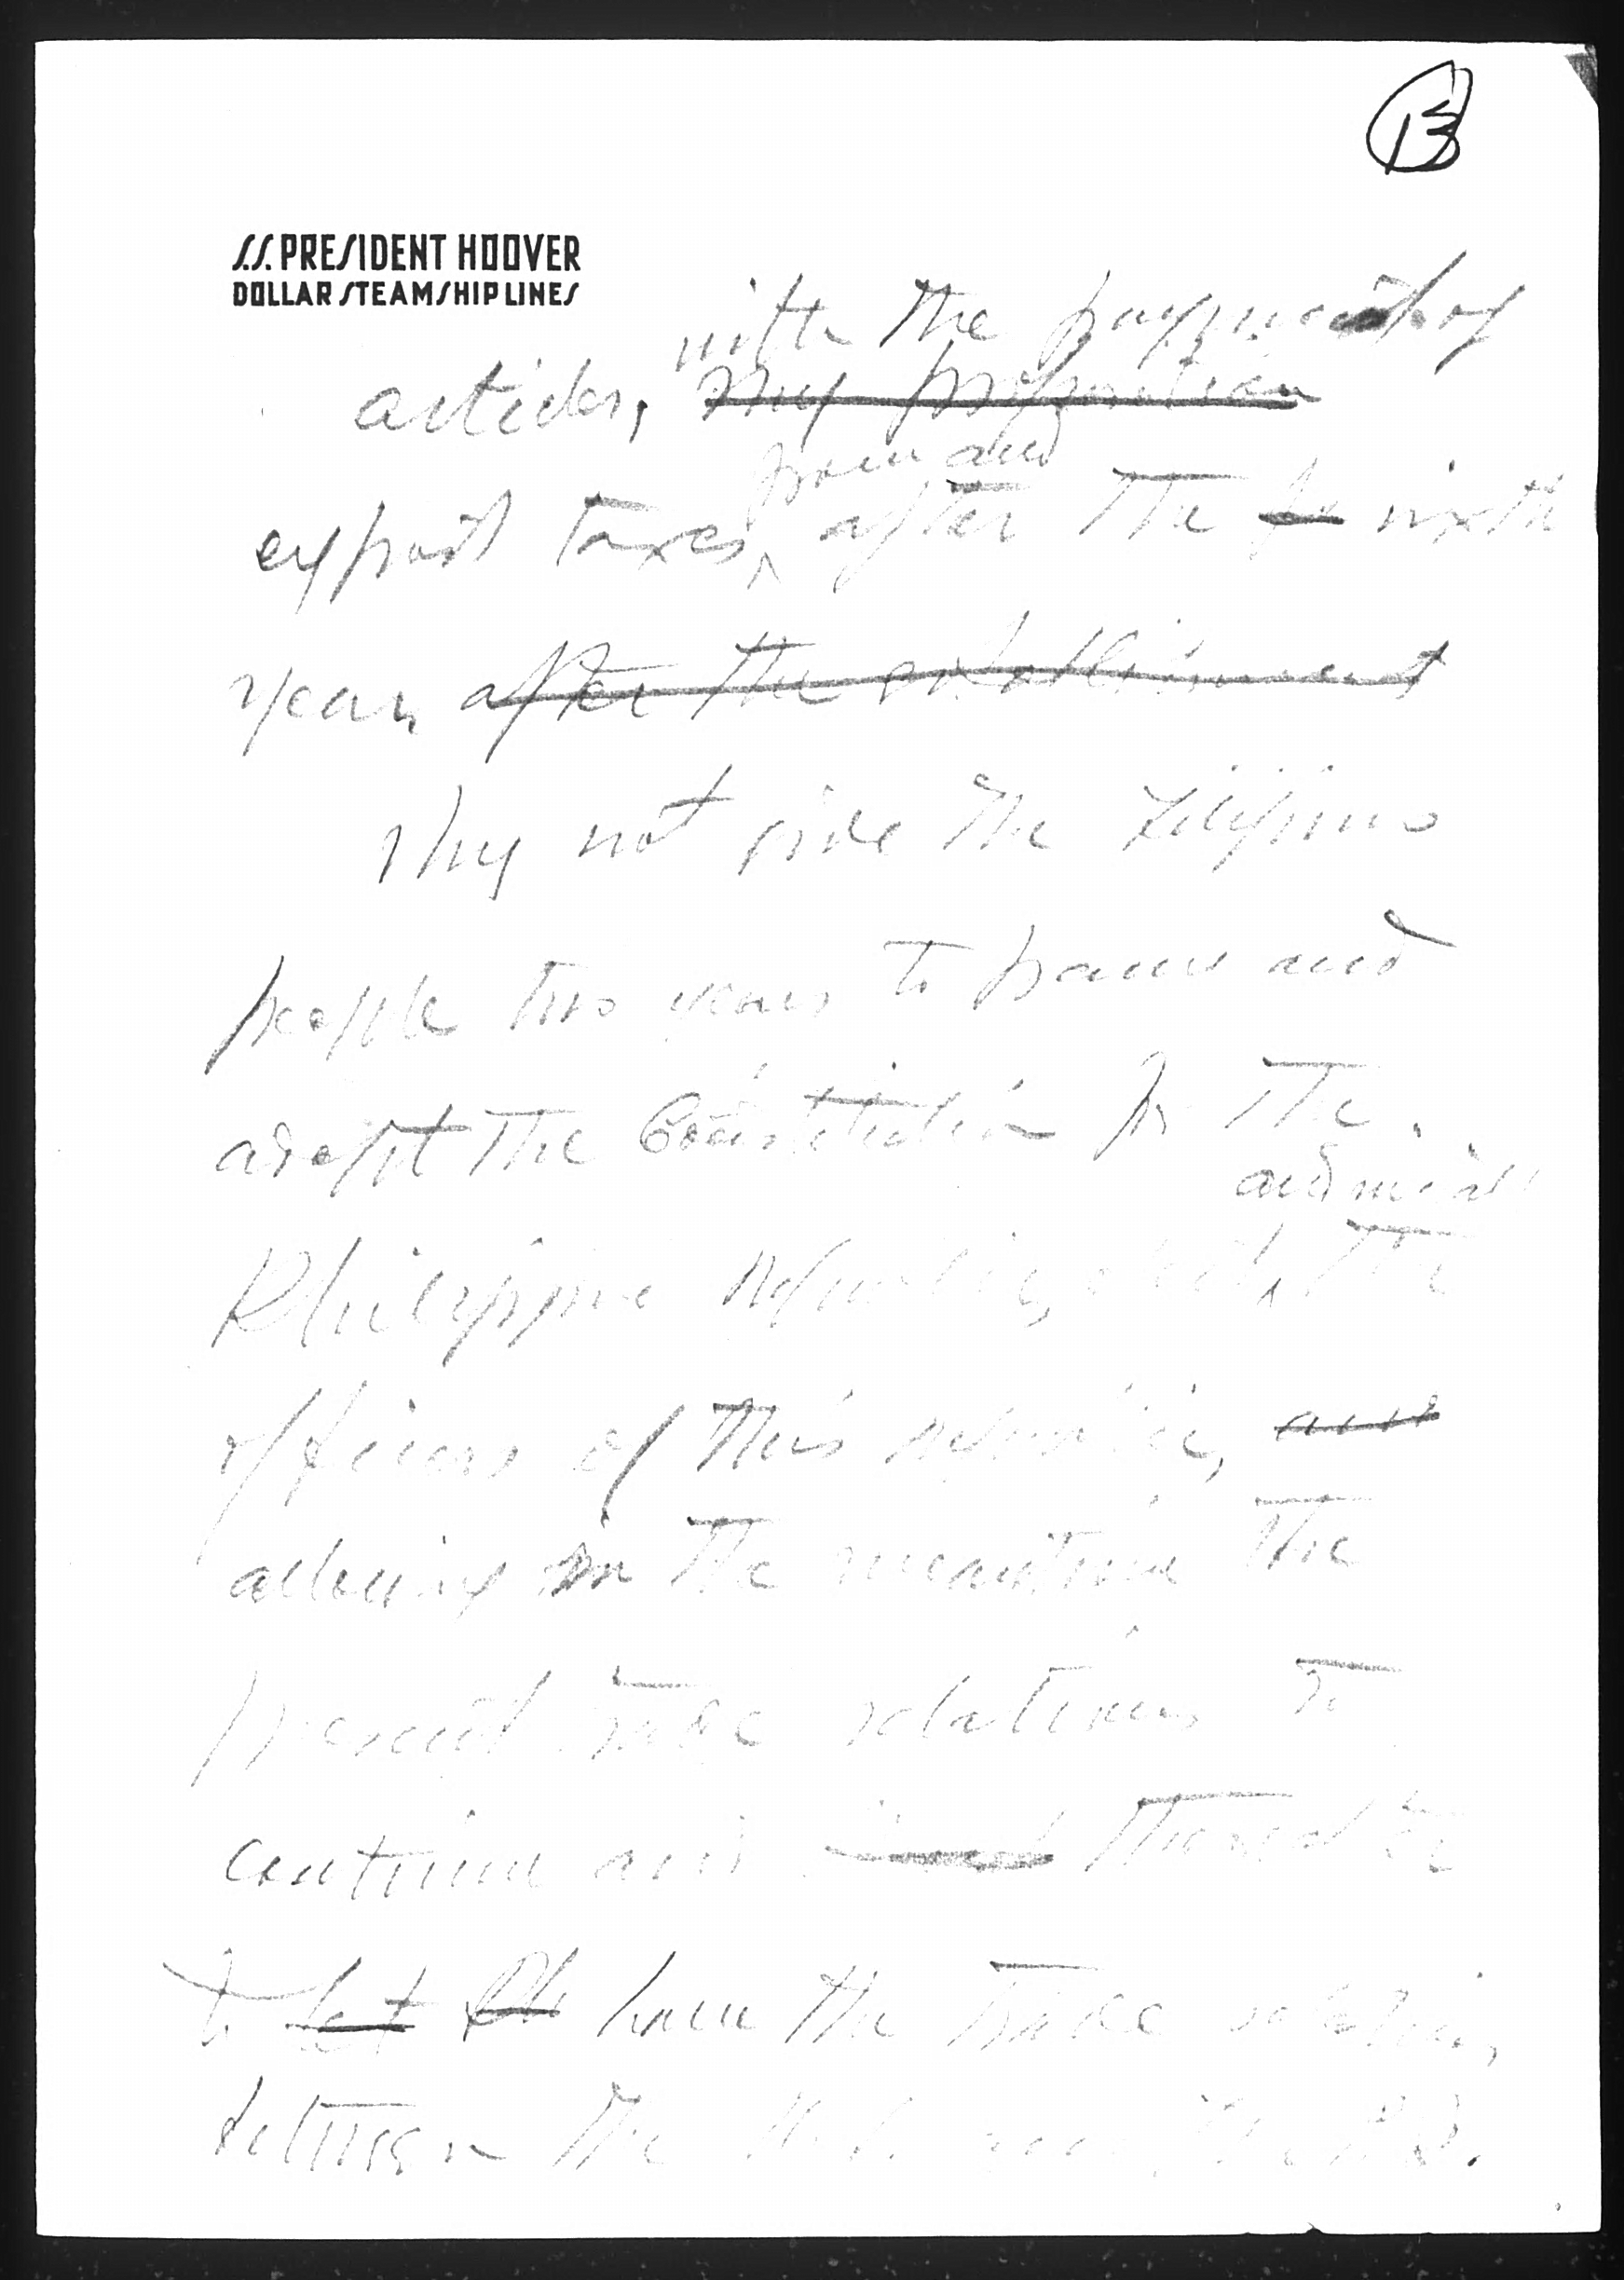 13
S.S. PRESIDENT HOOVER
DOLLAR STEAMSHIP LINES
with the payment of
articles, my proposition
from and
export taxes, after the sixth
year, after the establishment
Why not give the Filipino
people two years to frame and
adopt the Constitution for the
Philippine republic, elect, the
officers of this republic, and
allowing in the meantime the
present trade relations to
continue and thereafter
to let Ph have the trade relations
between the U.S. and the P.I.